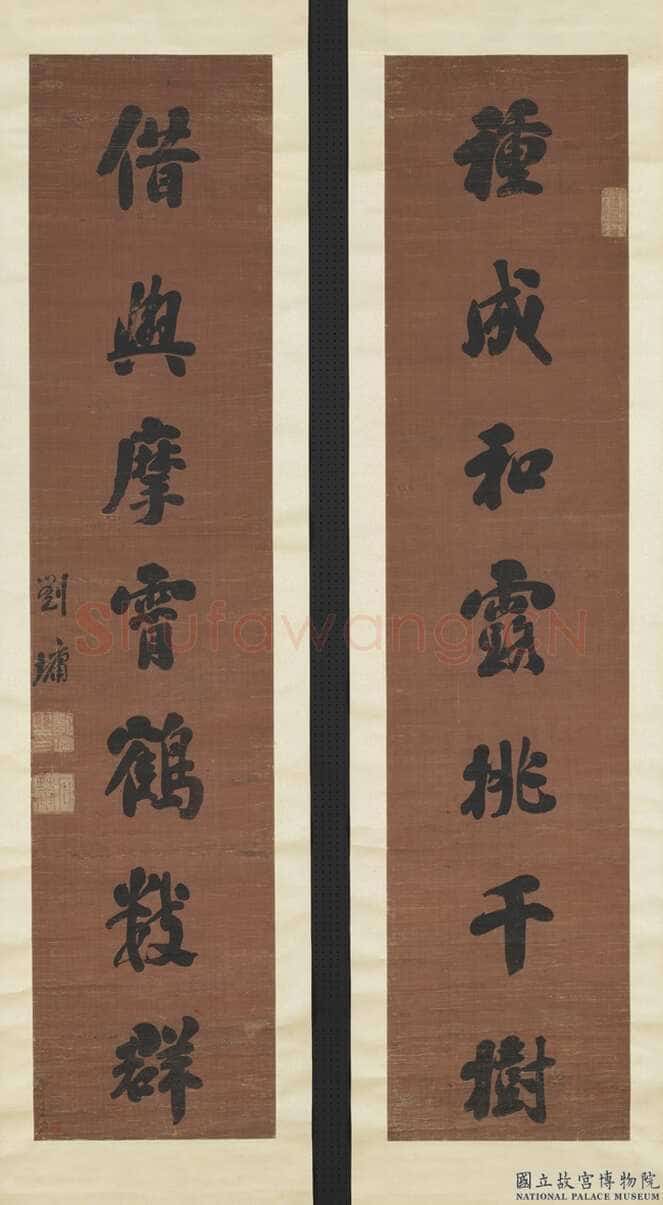 種成和露桃千樹
借與摩霄鶴數群
劉墉
ShufawangCN
國立故宮博物院
NATIONAL PALACE MUSEUM